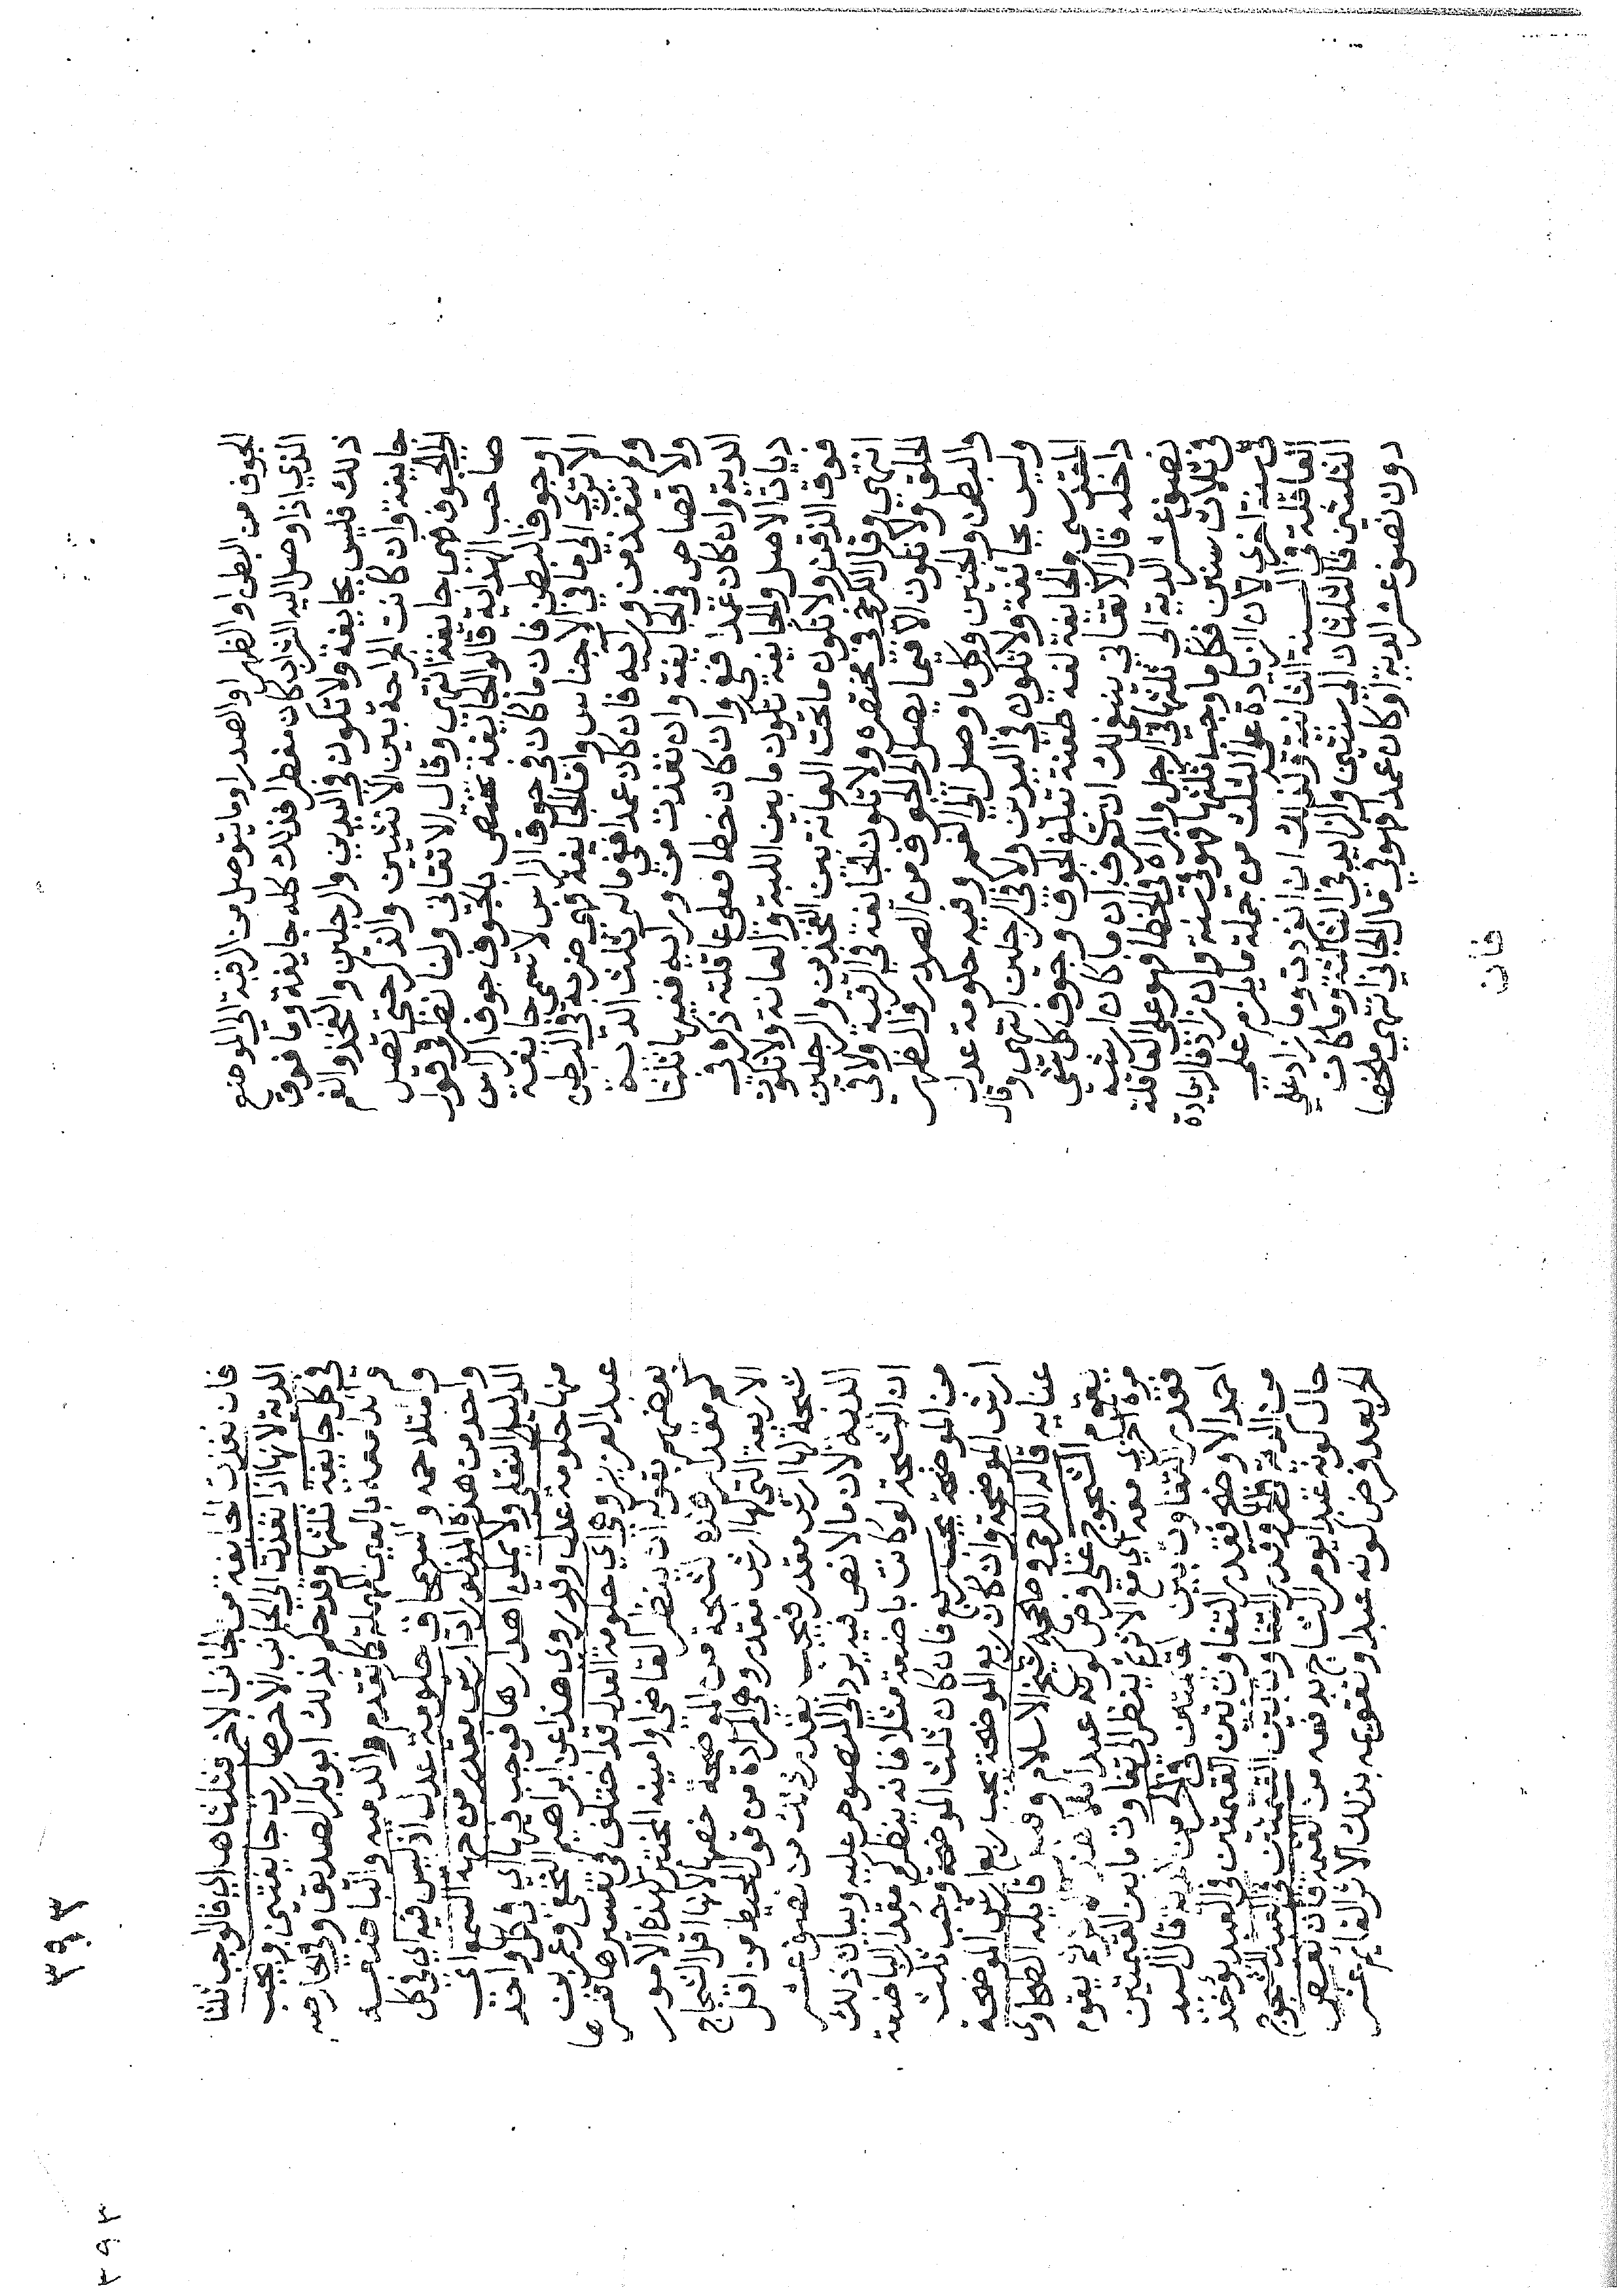 الجوف من البطن او الظهر او الصدر او ما يتوصل من الرقبة الى الموضع
الذي اذا وصل اليه الشراب كان مفطرا فذلك كله جايفة وما فوق
ذلك فليس بجايفة ولا تكون في اليدين والرجلين والفخذ والفم
جايفة وان كانت الجراحة بين الانثيين والذكر حتى تصل
الى الجوف فهي جايفة انتهى وقال الاتقاني ولنا نظر في قول
صاحب الهداية قالوا الجايفة تختص بالجوف جوف الراس
او جوف البطن فان ما كان في جوف الراس لا تسمى جايفة
الا ترى الى ما في الاجناس واما الجايفة فهي ضربة في البطن
ولم تنفذ من ورايه فان كان عمدا ففي ماله ثلث الدية
ولا قصاص في الجايفة وان نفذت من ورايه ففيها ثلثا
الدية وان كان عمدا ففي وان كان خطا فعلى عاقلته ذكره في
ديات الاصل والجايفة تكون ما بين اللبة والعانة ولا تكون
فوق الذقن ولا تكون ما تحت العانة بين الفخذين والرجلين
انتهى وقال الكرخي في مختصره ولا تكون الجائفة في الرقبة ولا في
الحلق ولا تكون الا فيما يصل الى الجوف من الصدر والظهر
والبطن والجنبين وكل ما وصل الى الفم وفيه حكومة عدل
وليس بجائفة ولا تكون في اليدين ولا في الرجلين انتهى وقال
المقدسي والجائفة لغة طعنة تبلغ الجوف وجوف كل شي
داخله قال الاتقاني ينبغي لك ان تعرف ان ما كان ارشه
نصف عشر الدية الى ثلثها في الرجل والمراة في الخطا فهو على العاقلة
في ثلاث سنين فكل ما وجب ثلثها فهو في سنة وان زاد فالزيادة
في سنة اخرى لان الزيادة على الثلث من جملة ما يلزم على
العاقلة في السنة الثانية وكذلك ان انفردت وما زاد على
الثلثين فالثلثان في سنتين والزايد في الثالثة وما كان
دون نصف عشر الدية او كان عمدا فهو في مال الجاني انتهى ملخصا
فان
٣٩٣
فان نفذت الجايفة من الجانب الاخر فثلثاها اي فالواجب ثلثا
الدية لانها اذا نفذت الى الجانب الاخر صارت جايفتين ويجب
في كل جايفة ثلثها وقد حكم بذلك ابو بكر الصديق وفي الحارصه
والدامعة بالعين المهملة كما تقدم والداميه والباضعة
والمتلاحمه والسمحاق حكومة عدل اذ ليس فيه اي في كل
واحد من هذه المذكورات ارش مقدر من جهة السمع اي
الدليل النقلي ولا يمكن اهدارها فوجب فيها اي في كل واحد
منها حكومة عدل وقد روي هذا عن ابراهيم النخعي وعمر بن
عبد العزيز وهي اي حكومة العدل قد اختلف في تفسيرها فسرها
بعضهم بقوله ان ينظر القاضي او امينه المختبر لهذه الامور
كم مقدار هذه الشجة من الموضحة خصها لانها اقل الشجاج
الاربعة التي لها ارش مقدر وهي المرادة من قول المحيط من اقل
شجة لها ارش مقدر فيجب بقدر ذلك من نصف عشر
الدية لان ما لا نص فيه يرد الى المنصوص عليه وبيان ذلك
ان الشجة لو كانت باضعة مثلا فانه ينظر كم مقدار الباضعة
من الموضحة فان كان ثلث الموضحة وجب ثلث
ارش الموضحة وان كان ربع الموضحة يجب ربع ارش الموضحة
عنايه قاله الكرخي وصححه شيخ الاسلام وقيل قايله الطحاوي
يقوم المشجوج على فرض كونه عبدا بلا هذا الاثر ثم يقوم
مرة اخرى معه اي مع الاثر ثم ينظر الى تفاوت ما بين القيمتين
فقدر التفاوت بين القيمتين في الحر من الدية قال السيد
احمد الاوضح فقدر التفاوت بين القيمتين في العبد يؤخذ
من الدية في الحر وقدر التفاوت بين القيمتين في العبد المشجوج
حال كونه عبدا يوم الشجاج يدفعه من القيمه فان نقص
الحر بعد فرض كونه عبدا وتقويمه بذلك الاثر القائم عشر
٣٩٣